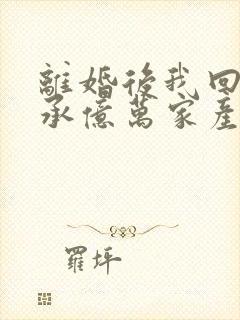 離婚後我回
承億萬家產
羅坪